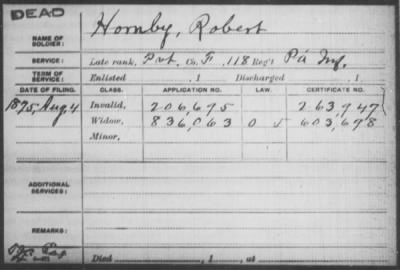 DEAD
NAME OF SOLDIER: Hornby, Robert
SERVICE: Late rank, Pvt. Co. F, 118 Reg't Pa Inf.
TERM OF SERVICE: Enlisted , 1 Discharged , 1 .
DATE OF FILING. CLASS. APPLICATION NO. LAW. CERTIFICATE NO.
1875, Aug. 4 Invalid, 206,695 263,947
Widow, 836,063 0 5 603,698
Minor,
ADDITIONAL SERVICES:
REMARKS:
Died , 1 , at